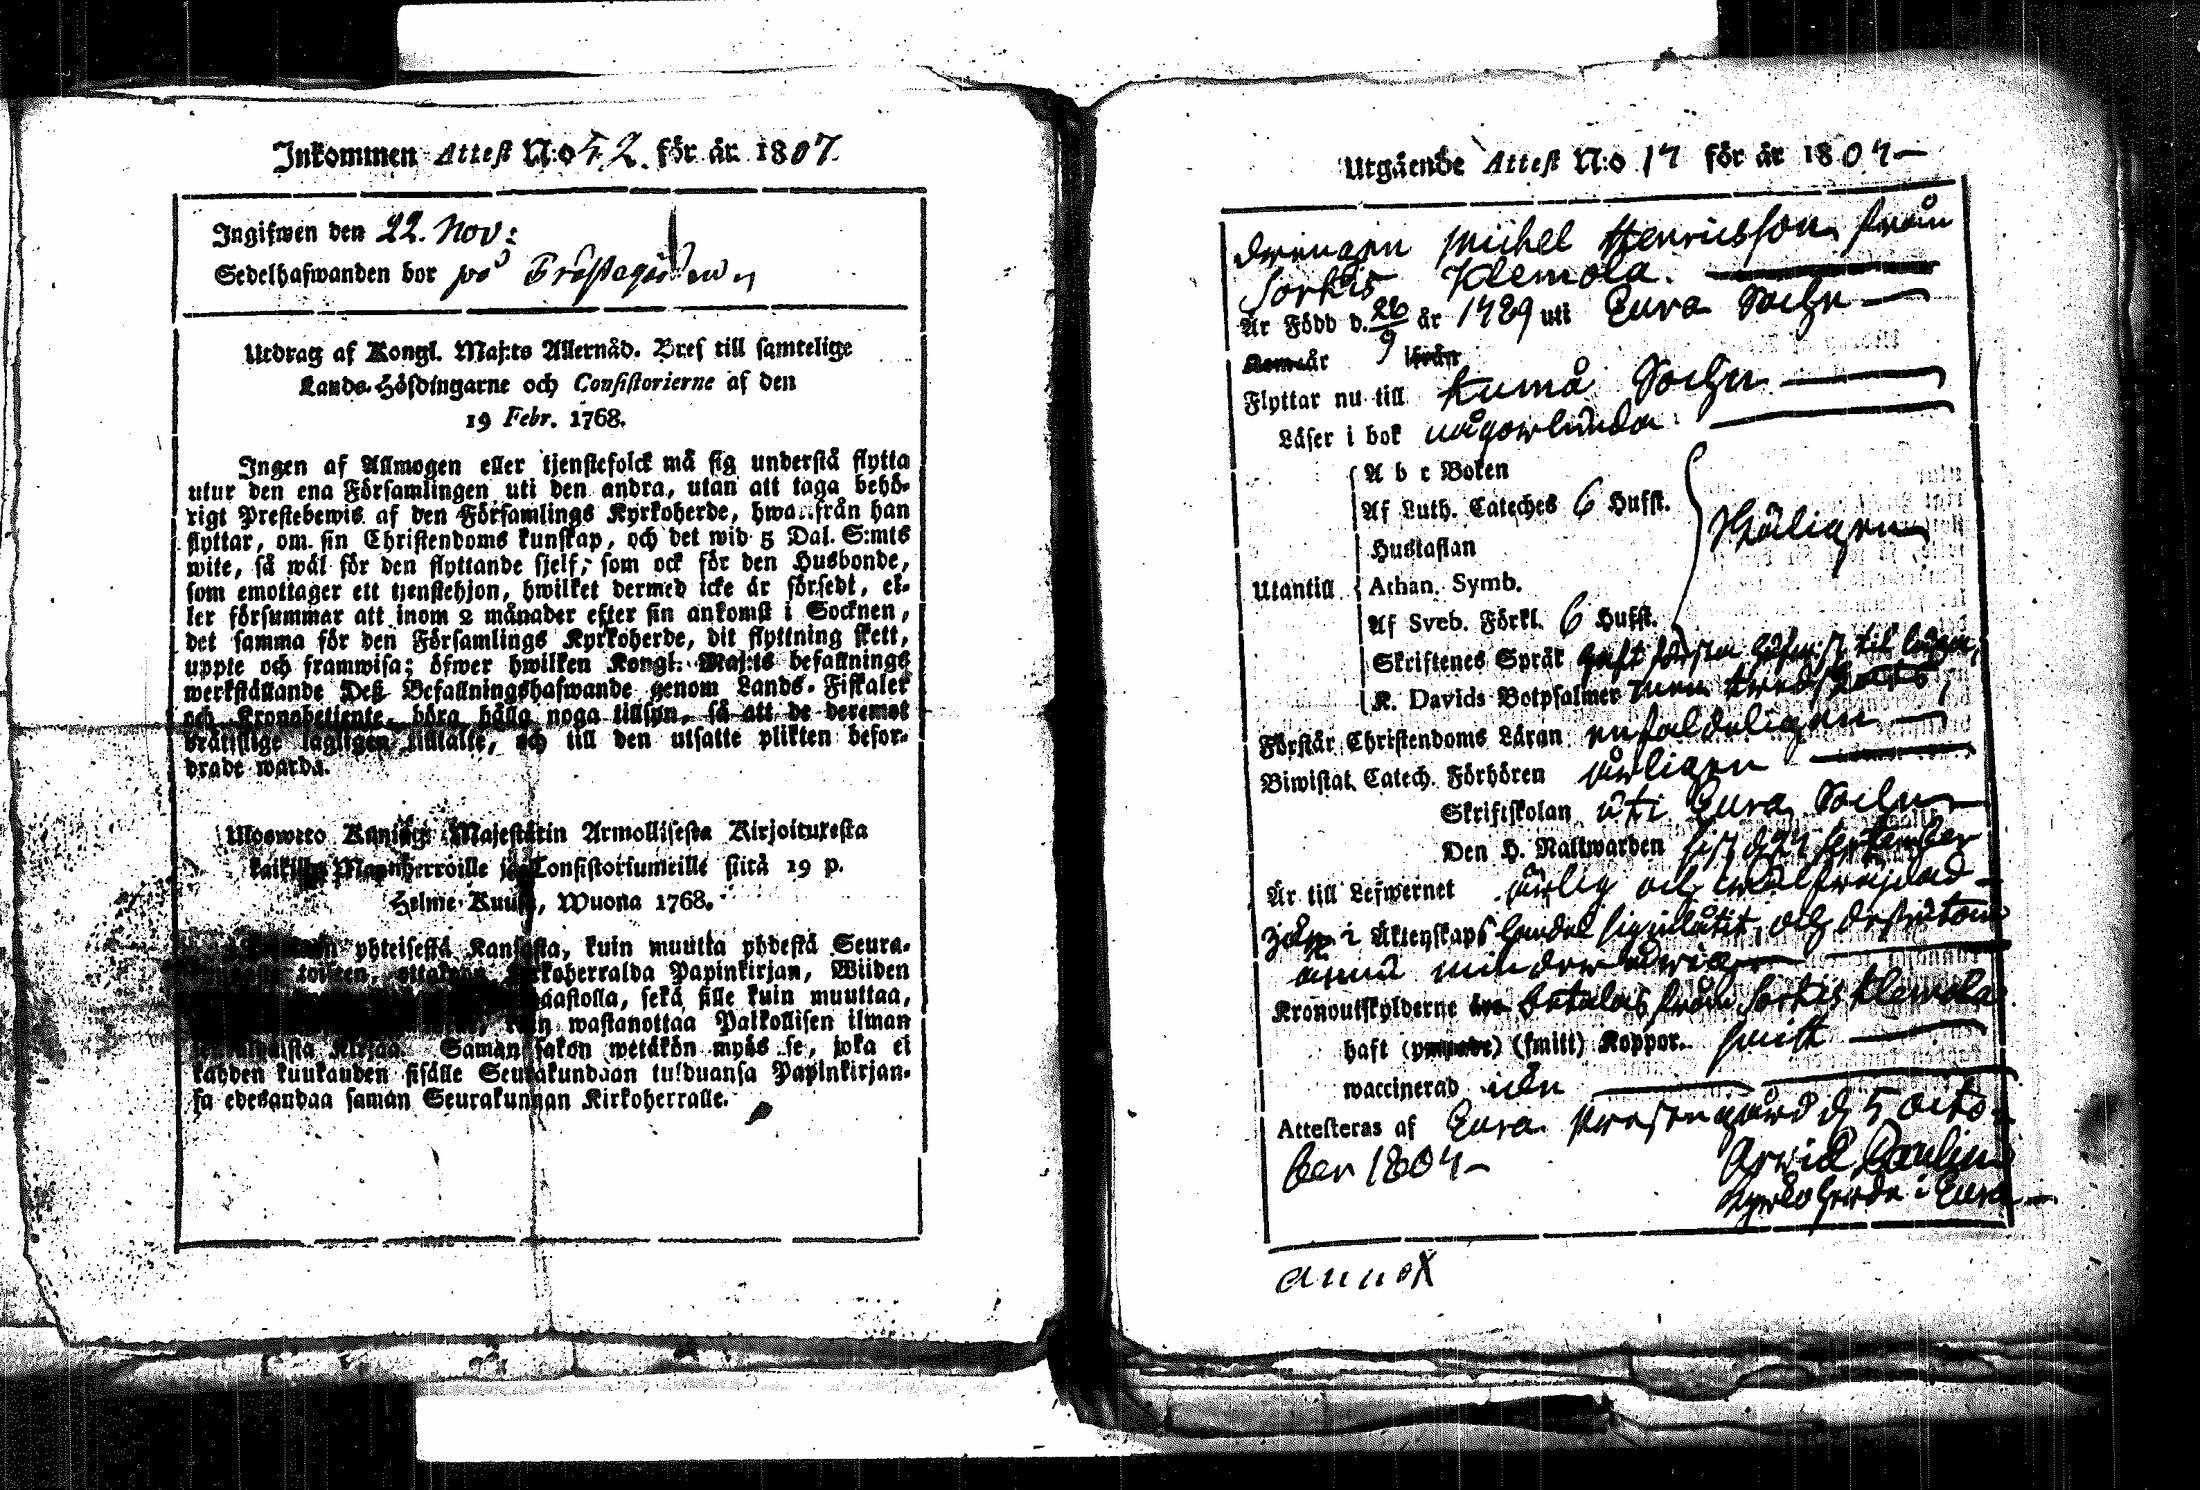 Inkommen Attest N:o 52. för år 1807.
Ingifwen den 22. Nov:
Sedelhafwanden bor på Prästegården
Utdrag af Kongl. Maj:ts Allernåd. Bref till samtelige
Lands-Höfdingarne och Consistorierne af den
19 Febr. 1768.
Ingen af Allmogen eller tjenstefolck må sig understå flytta
utur den ena Församlingen uti den andra, utan att taga behö-
rigt Prestebewis af den Församlings Kyrkoherde, hwarifrån han
flyttar, om sin Christendoms kunskap, och det wid 5 Dal. S:mts
wite, så wäl för den flyttande sjelf, som ock för den Husbonde,
som emottager ett tjenstehjon, hwilket dermed icke är försedt, el-
ler försummar att inom 2 månader efter sin ankomst i Socknen,
det samma för den Församlings Kyrkoherde, dit flyttning skett,
uppte och framwisa; öfwer hwilken Kongl. Maj:ts befallnings
werkställande Deß Befallningshafwande genom Lands-Fiskaler
och Kronobetjente, böra hålla noga tillsyn, så att de deremot
bråtslige lagligen tilltalte, och till den utsatte plikten befor-
drade warda.
Ulosweto Kuning: Majestetin Armollisesta Kirjoituxesta
kaikille Maanherroille ja Consistoriumeille siitä 19 p.
Helme-Kuusa, Wuona 1768.
yhteisestä Kansasta, kuin muutta yhdestä Seura-
toiseen, ottakoon Kirkoherralda Papinkirjan, Wiiden
sekä sille kuin muuttaa,
kuin wastanottaa Palkollisen ilman
Kirjaa. Saman sakon wetäkön myös se, joka ei
kahden kuukauden sisälle Seurakundaan tulduansa Papinkirjan-
sa edesandaa saman Seurakunnan Kirkoherralle.
Utgående Attest N:o 17 för år 1807
Drengen Michel Henricsson från
Sorkis Klemola.
Är Född d. 26/9 år 1789 uti Eura Sochn
Kom år ifrån
Flyttar nu till Kumå Sochn
Läser i bok någorlunda
Utantill
A b c Boken
Af Luth. Cateches 6 Hufst.
Hustaflan
Athan. Symb.
Af Sveb. Förkl. 6 Hufst.
Skriftenes Språk
K. Davids Botpsalmer
skäligen
Förstår Christendoms Läran enfaldeligen
Biwistat Catech. Förhören årligen
Skriftskolan uti Eura Sochn
Den H. Nattwarden sist d 27 September
Är till Lefwernet ärlig och wälfrejdad
i Äktenskaps handel sig inlåtit, och dessutom
ännu minderårig
Kronoutskylderne betalas från Sorkis Klemola
haft (ympade) (smitt) Koppor. smitt
waccinerad
Attesteras af Eura Prestegård d 5 octo-
ber 1807
Arwid Paulin
Kyrkoherde i Eura